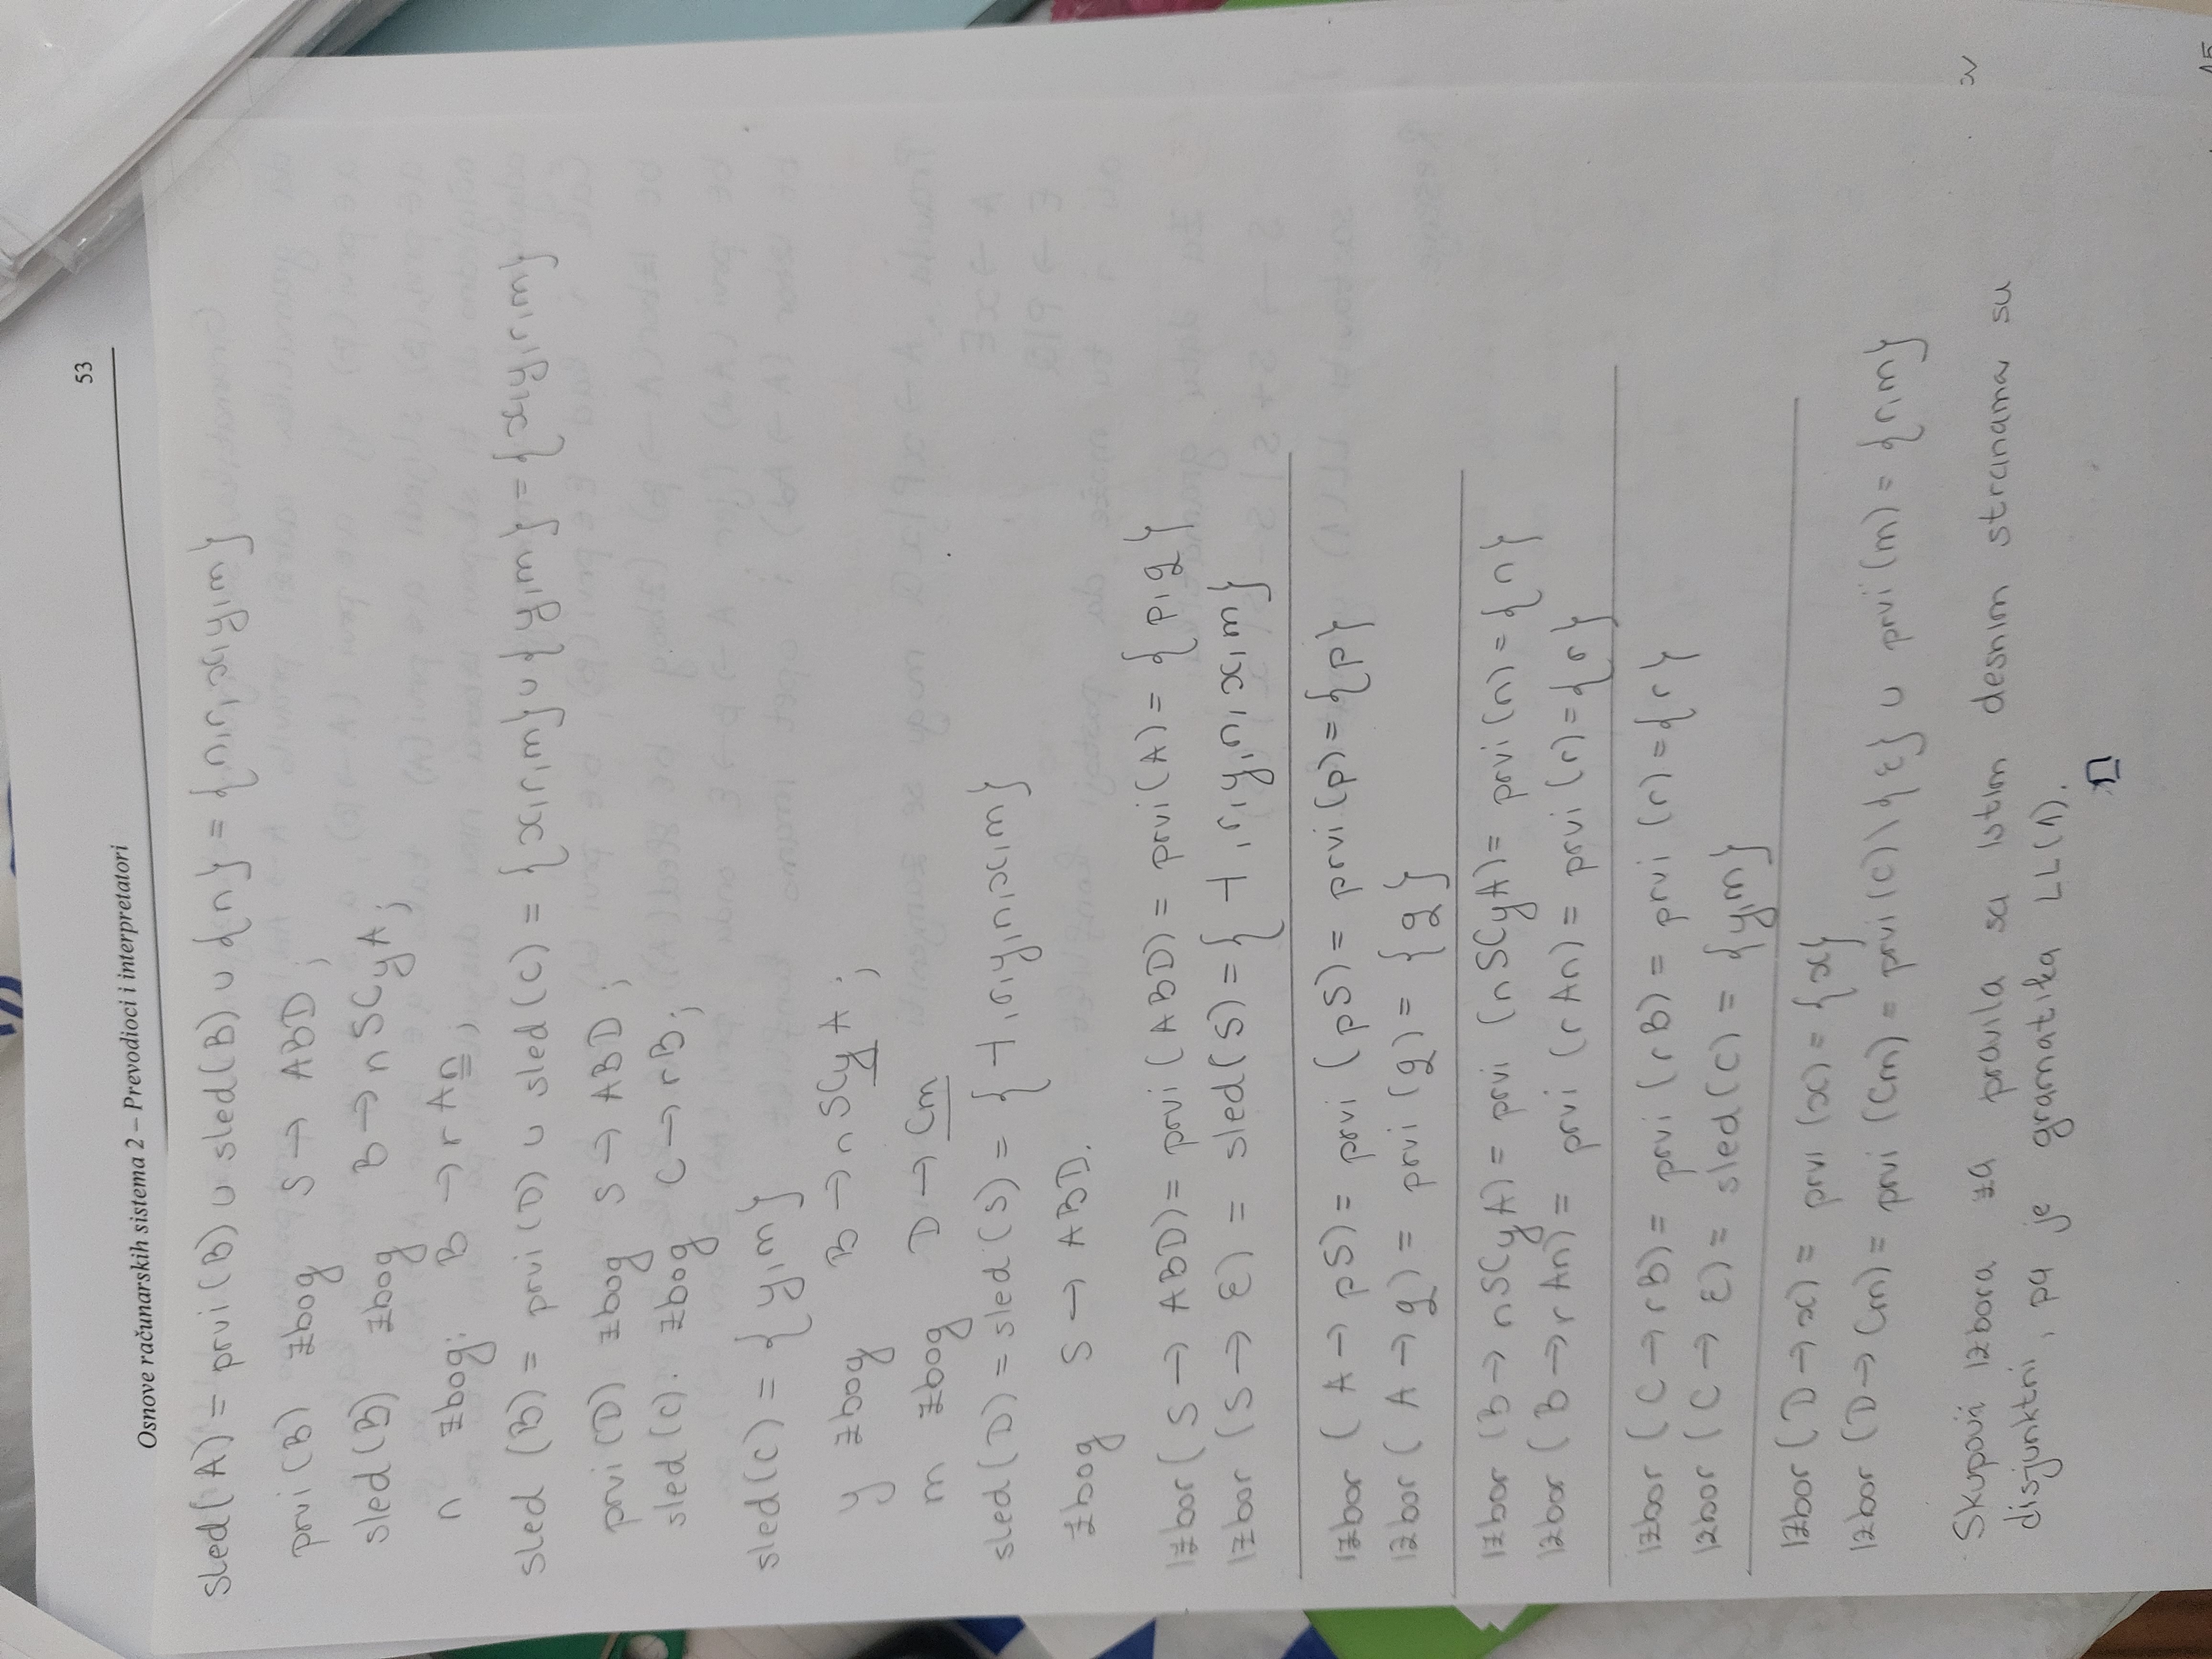 53
Osnove računarskih sistema 2 – Prevodioci i interpretatori
sled(A) = prvi(B) ∪ sled(B) ∪ {n} = {n, r, x, y, m}
prvi(B) zbog S → ABD;
sled(B) zbog B → nSCyA;
n zbog: B → rAn;
sled (B) = prvi(D) ∪ sled(C) = {x, r, m} ∪ {y, m} = {x, y, r, m}
prvi(D) zbog S → ABD;
sled(C). zbog C → rB;
sled(C) = {y, m}
y zbog B → nSCyA;
m zbog D → Cm
sled(D) = sled(S) = {⊣, r, y, n, x, m}
zbog S → ABD.
Izbor(S → ABD) = prvi(ABD) = prvi(A) = {p, q}
Izbor (S → ε) = sled(S) = {⊣, r, y, n, x, m}
Izbor (A → pS) = prvi (pS) = prvi(p) = {p}
Izbor (A → q) = prvi (q) = {q}
Izbor (B → nSCyA) = prvi (nSCyA) = prvi(n) = {n}
Izbor (B → rAn) = prvi (rAn) = prvi (r) = {r}
Izbor (C → rB) = prvi (rB) = prvi (r) = {r}
Izbor (C → ε) = sled(C) = {y, m}
Izbor (D → x) = prvi (x) = {x}
Izbor (D → Cm) = prvi (Cm) = prvi(C)\{ε} ∪ prvi(m) = {r, m}
Skupovi izbora za pravila sa istim desnim stranama su
disjunktni, pa je gramatika LL(1).